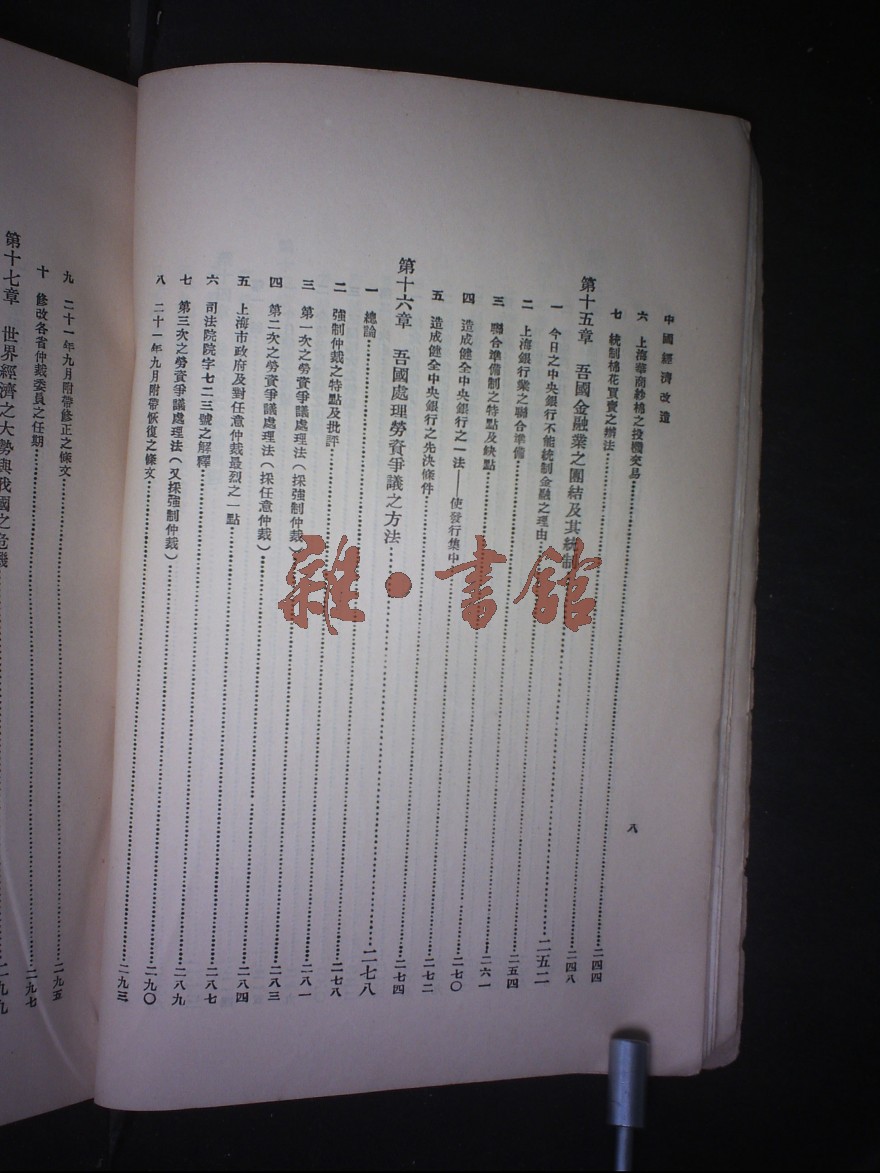 中國經濟改造 八
六 上海華商紗棉之投機交易……二四四
七 統制棉花買賣之辦法……二四八
第十五章 吾國金融業之團結及其統制……二五二
一 今日之中央銀行不能統制金融之理由……二五四
二 上海銀行業之聯合準備……二六一
三 聯合準備制之特點及缺點……二七〇
四 造成健全中央銀行之一法——使發行集中……二七二
五 造成健全中央銀行之先決條件……二七四
第十六章 吾國處理勞資爭議之方法……二七八
一 總論……二七八
二 強制仲裁之特點及批評……二八一
三 第一次之勞資爭議處理法(採強制仲裁)……二八三
四 第二次之勞資爭議處理法(採任意仲裁)……二八四
五 上海市政府及對任意仲裁最烈之一點……二八七
六 司法院院字七二三號之解釋……二八九
七 第三次之勞資爭議處理法(又採強制仲裁)……二九〇
八 二十一年九月附帶恢復之條文……二九三
九 二十一年九月附帶修正之條文……二九五
十 修改各省仲裁委員之任期……二九七
第十七章 世界經濟之大勢與我國之危機……二九九
雜·書館